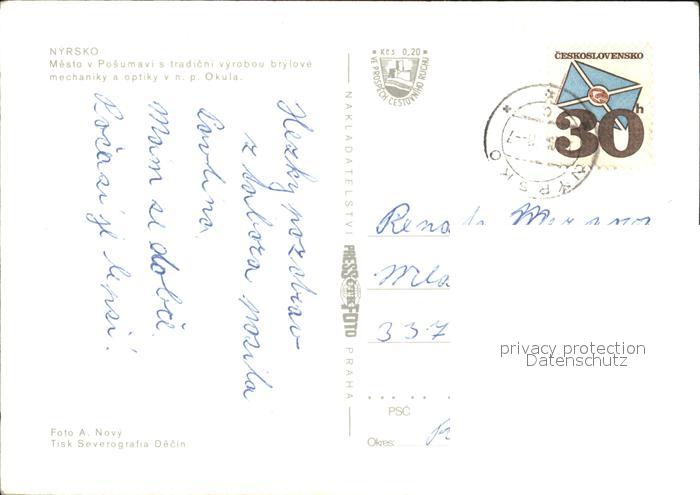 NÝRSKO
Město v Pošumaví s tradiční výrobou brýlové
mechaniky a optiky v n. p. Okula.
Hezký pozdrav
z tábora posílá
Pavlína.
Mám se dobře.
Počasí je lepší.
Foto A. Nový
Tisk Severografia Děčín
NAKLADATELSTVÍ PRESSFOTO PRAHA
Kčs 0,20
VE PROSPĚCH CESTOVNÍHO RUCHU
ČESKOSLOVENSKO
30h
NÝRSKO
Renata
337
privacy protection
Datenschutz
PSČ
Okres: